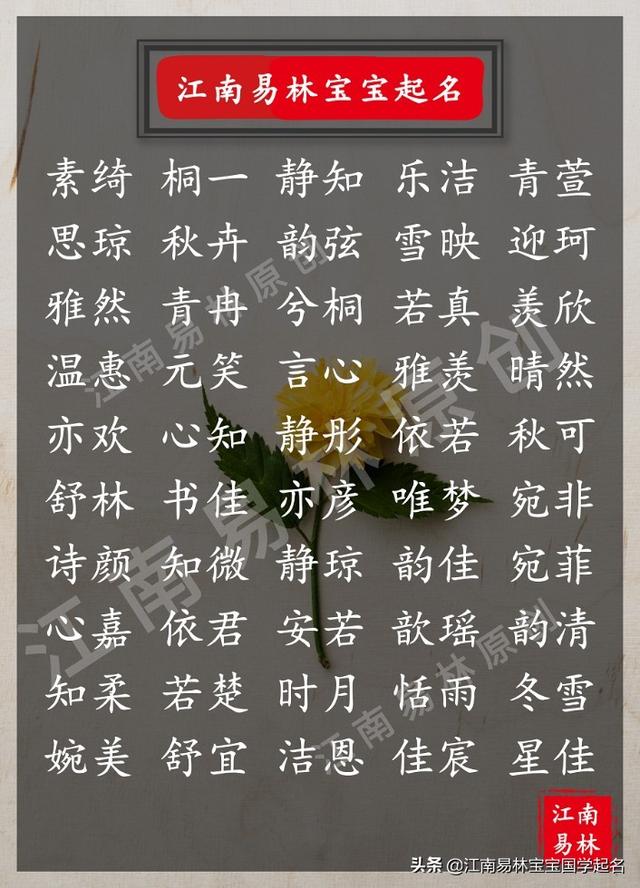 江南易林宝宝起名
素绮 桐一 静知 乐洁 青萱
思琼 秋卉 韵弦 雪映 迎珂
雅然 青冉 兮桐 若真 羡欣
温惠 元笑 言心 雅羡 晴然
亦欢 心知 静彤 依若 秋可
舒林 书佳 亦彦 唯梦 宛非
诗颜 知微 静琼 韵佳 宛菲
心嘉 依君 安若 歆瑶 韵清
知柔 若楚 时月 恬雨 冬雪
婉美 舒宜 洁恩 佳宸 星佳
江南易林原创
江南易林原创
江南易林原创
江南
易林
头条 @江南易林宝宝国学起名